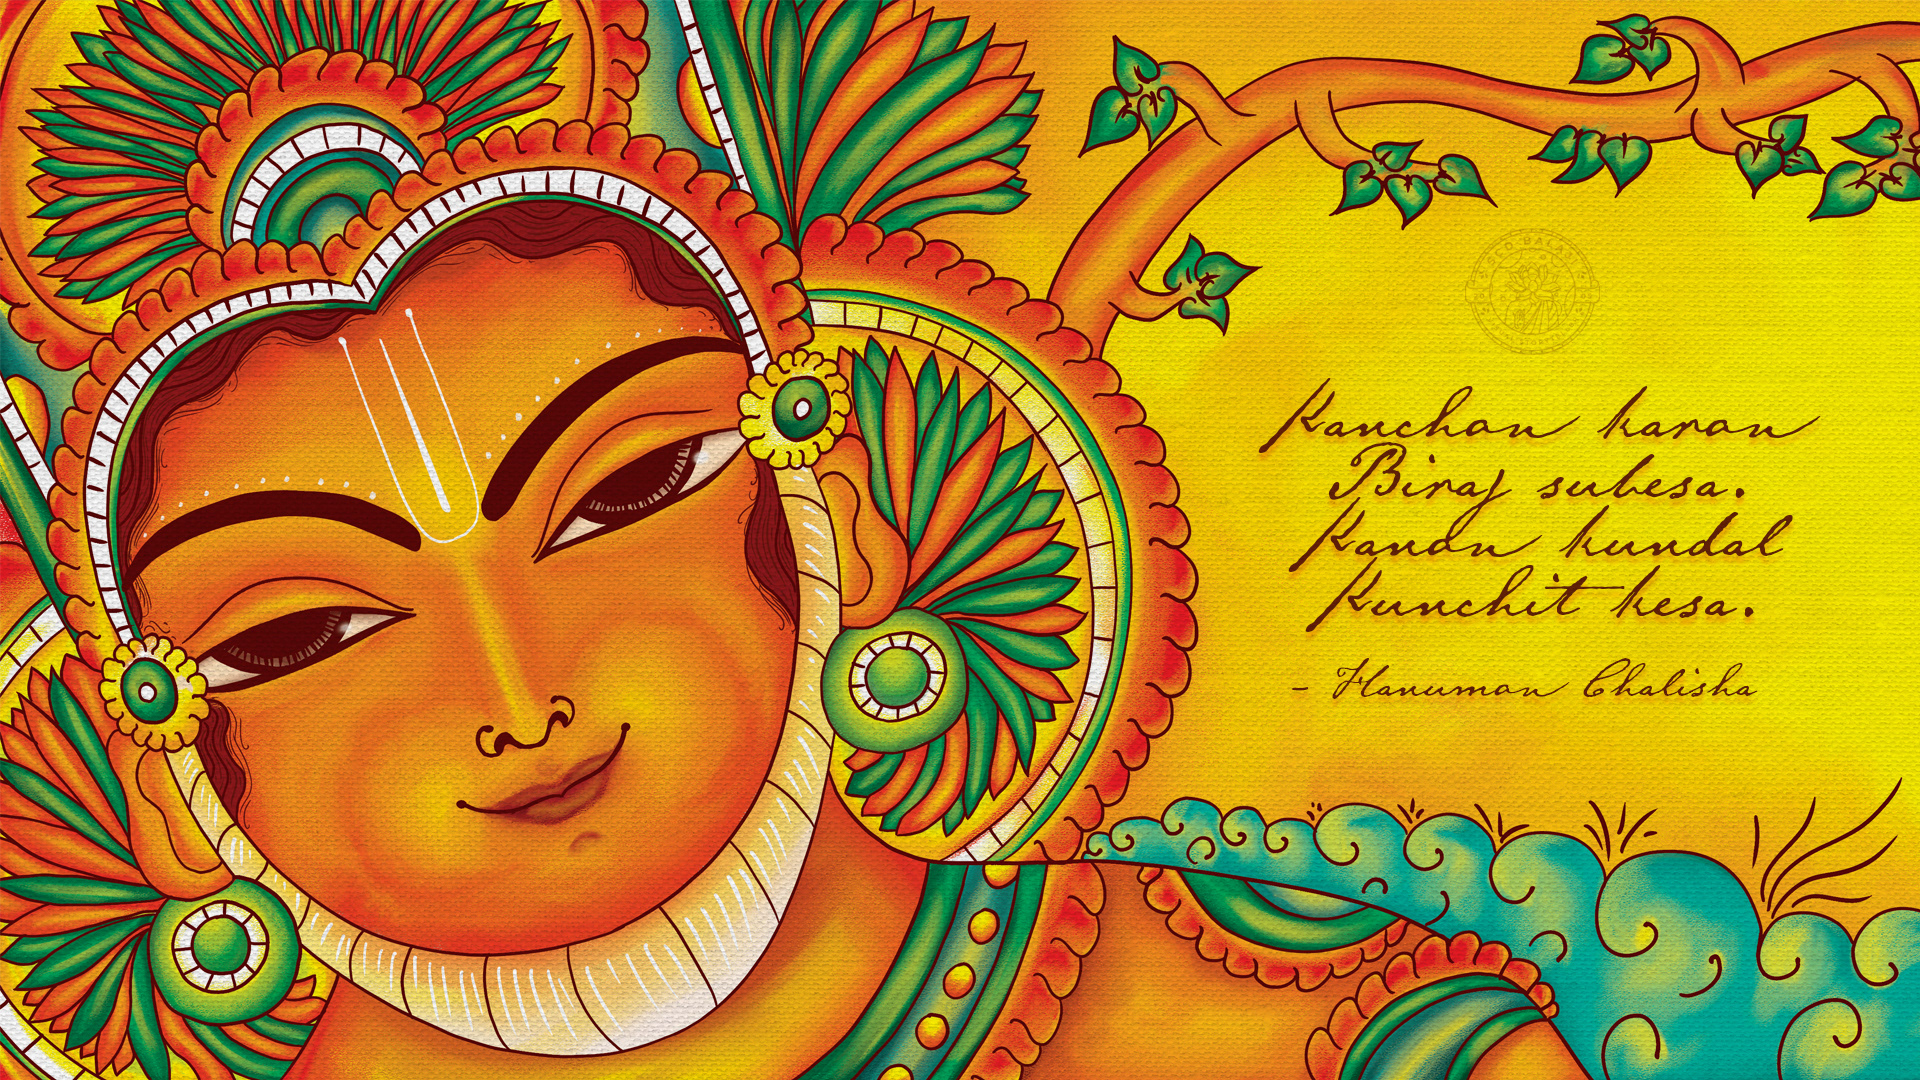 Kanchan karan
Biraj subesa.
Kanan kundal
Kunchit kesa.
- Hanuman Chalisha